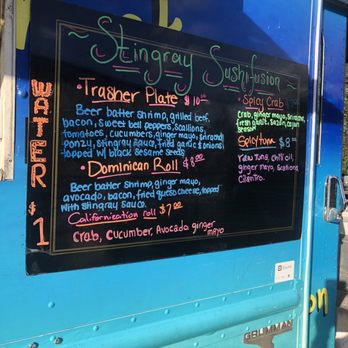 ~ Stingray Sushifusion ~
• Trasher Plate $10
Beer batter shrimp, grilled beef,
bacon, sweet bell peppers, Scallions,
tomatoes, cucumbers, ginger mayo, sriracha
ponzu, stingray sauce, fried garlic & onions
topped w/ black sesame seeds
• Dominican Roll $8.00
Beer batter shrimp, ginger mayo,
avocado, bacon, fried queso cheese, topped
with stingray sauce.
Californication roll $7.00
Crab, Cucumber, Avocado ginger
mayo
• Spicy Crab
Crab, ginger mayo, sriracha,
Spicy tuna $8
raw tuna, chili oil,
ginger mayo, scallions
Cilantro.
WATER $1
GRUMMAN